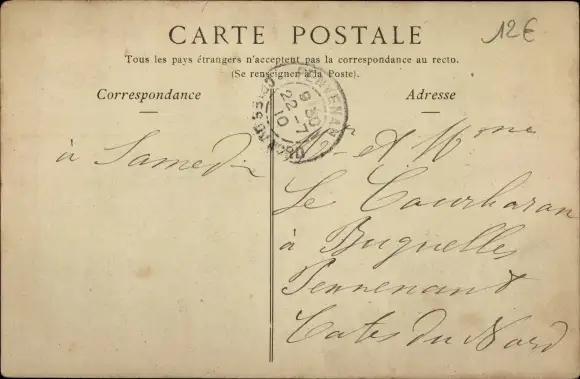 CARTE POSTALE
12€
Tous les pays étrangers n'acceptent pas la correspondance au recto.
(Se renseigner à la Poste).
Correspondance
Adresse
PENVENAN
9 30
22 - 7
10
CÔTES DU NORD
à Samedi
Mr et Mme
Le Courharan
à Buguelles
Penvenant
Cotes du Nord